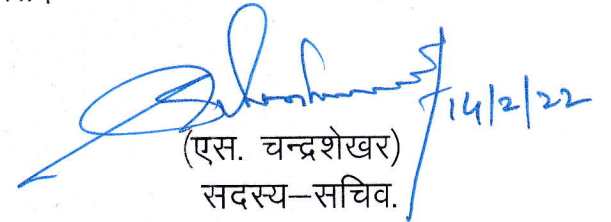 14/2/22
(एस. चन्द्रशेखर)
सदस्य–सचिव.